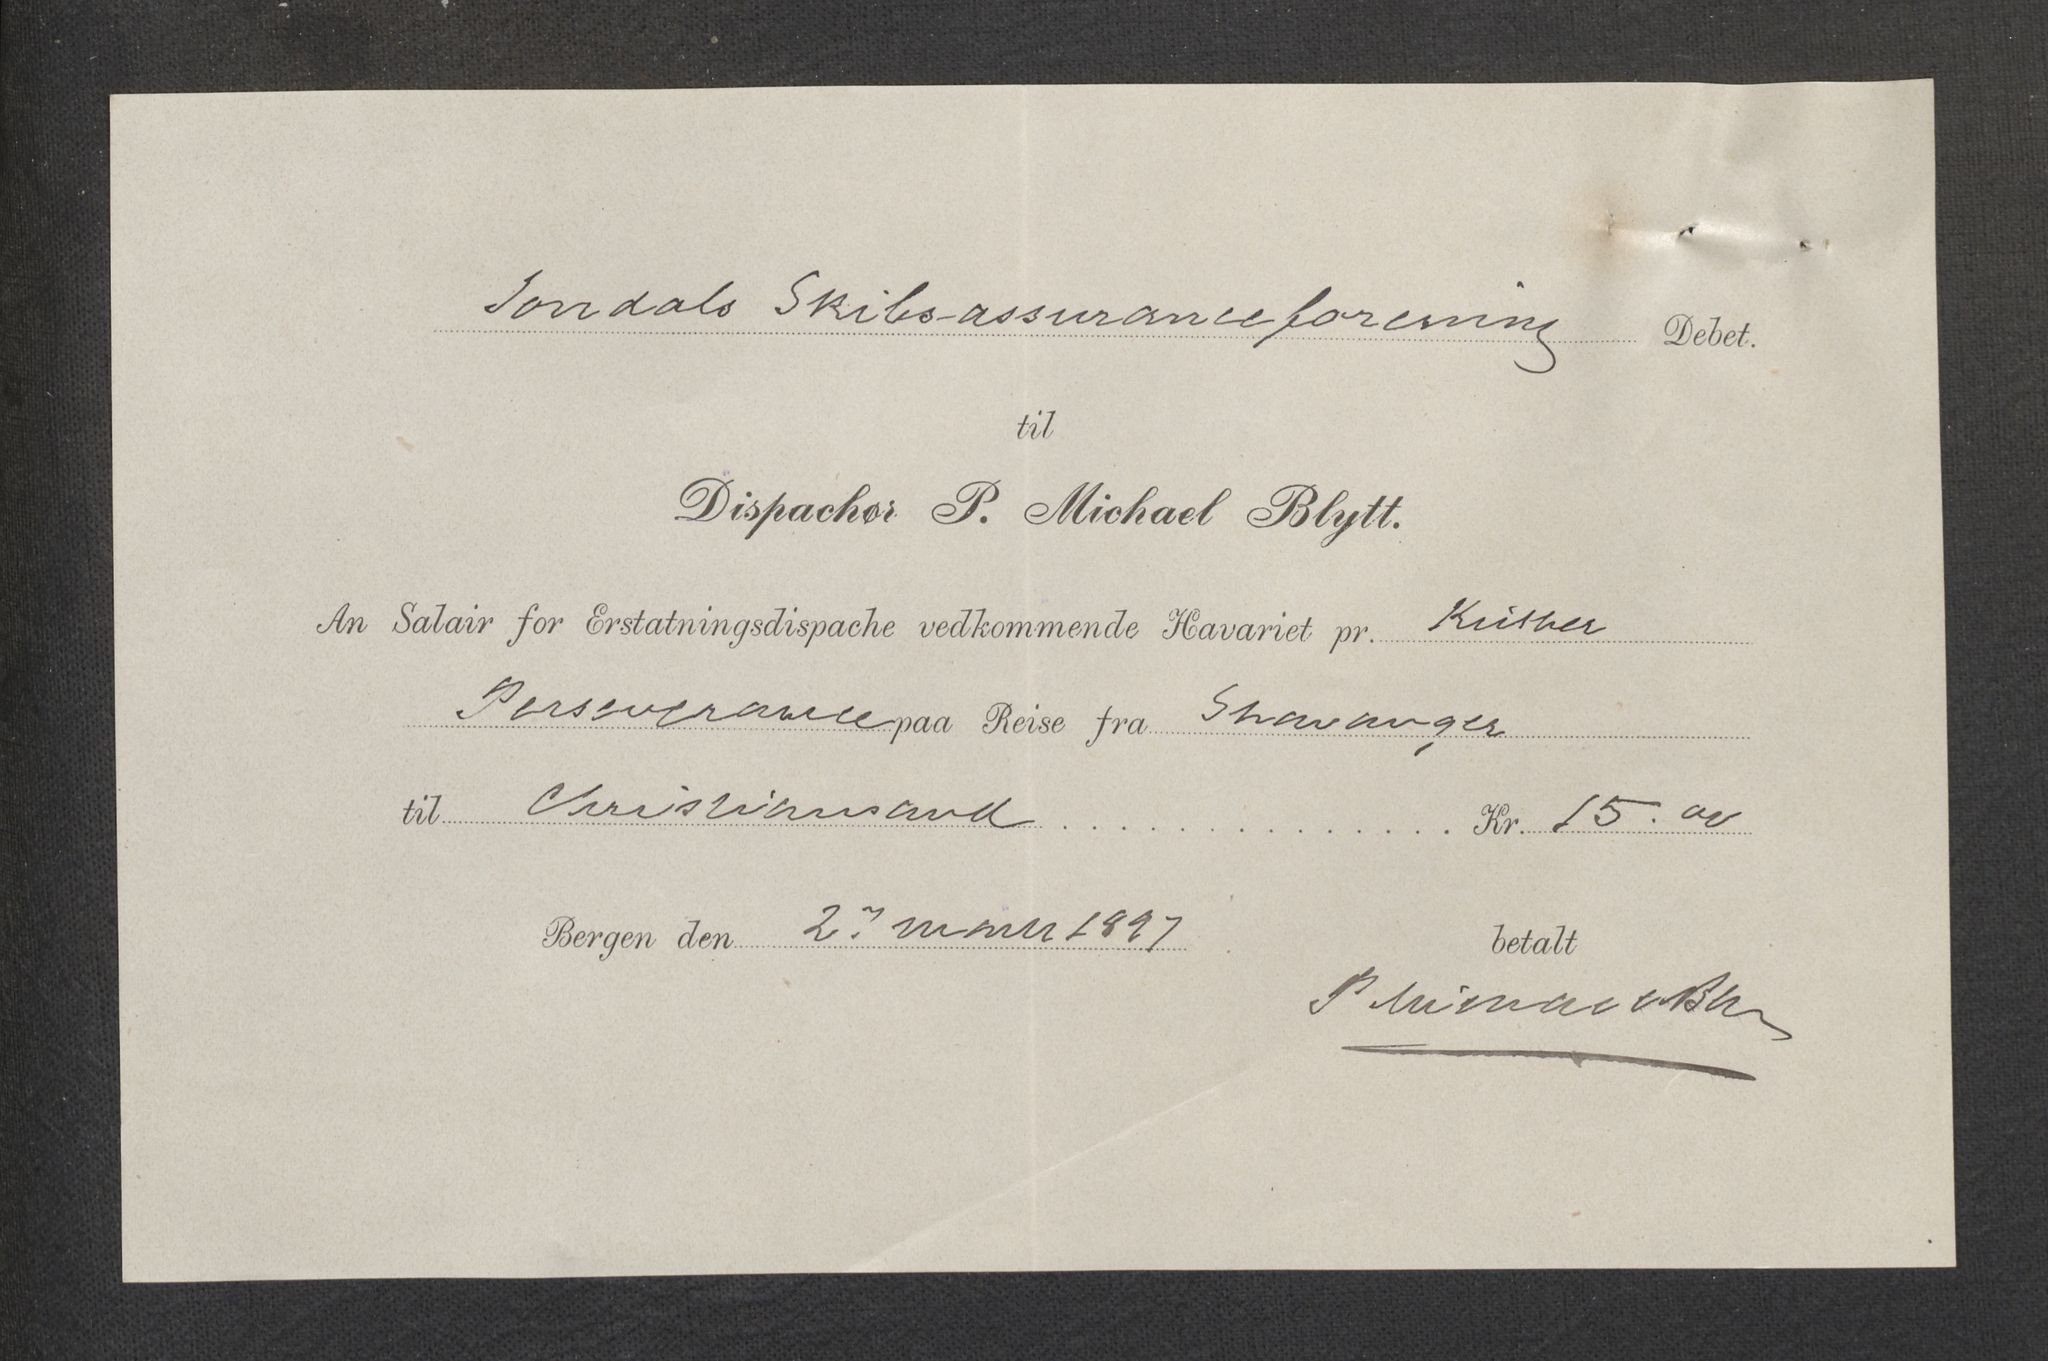 Jondals Skibs-assuranceforening Debet.
til
Dispachør P. Michael Blytt.
An Salair for Erstatningsdispache vedkommende Havariet pr. Kutter
Perseverance paa Reise fra Stavanger
til Christiansand Kr. 15.00
Bergen den 2. mars 1897 betalt
P Michael Blytt